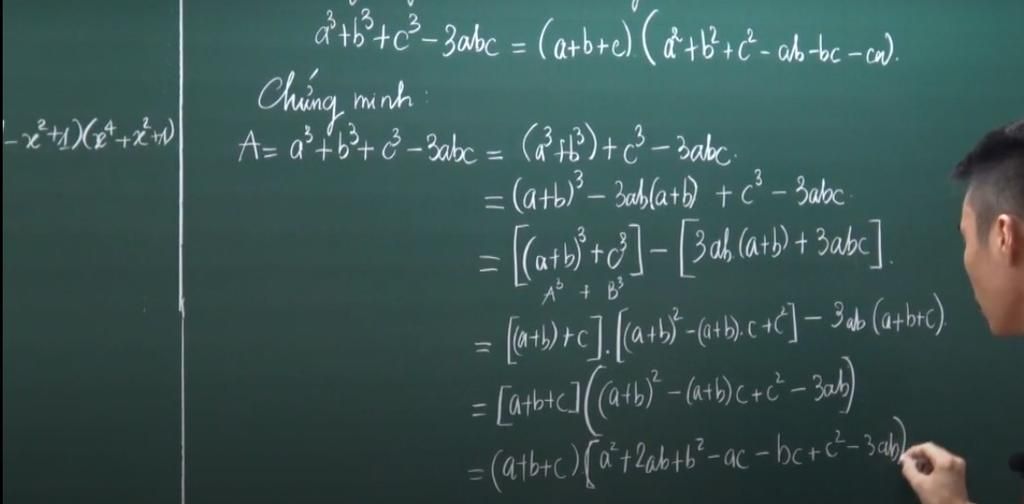 a³+b³+c³-3abc = (a+b+c)(a²+b²+c²-ab-bc-ca).
Chứng minh:
-x²+1)(x⁴+x²+1)
A= a³+b³+c³-3abc = (a³+b³)+c³-3abc.
= (a+b)³-3ab(a+b)+c³-3abc.
= [(a+b)³+c³]-[3ab.(a+b)+3abc].
A³ + B³
= [(a+b)+c].[(a+b)²-(a+b).c+c²]-3ab(a+b+c).
= [a+b+c]((a+b)²-(a+b)c+c²-3ab)
= (a+b+c)(a²+2ab+b²-ac-bc+c²-3ab)